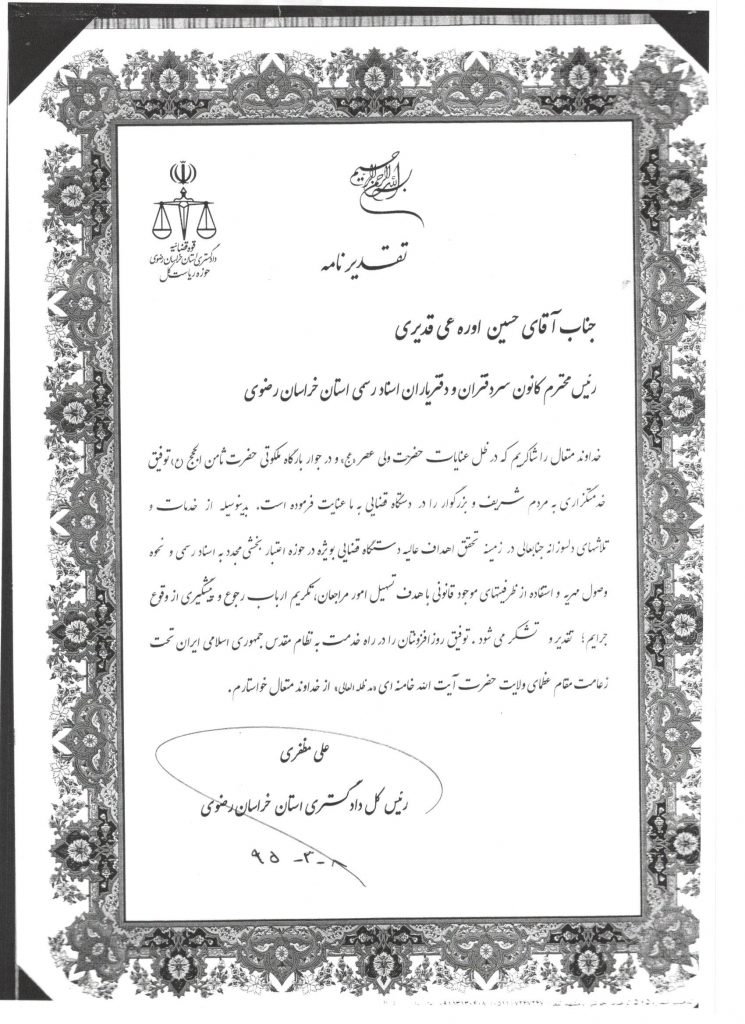 بسم الله الرحمن الرحیم
قوه قضائیه
دادگستری استان خراسان رضوی
حوزه ریاست کل
تقدیر نامه
جناب آقای حسین اوره عی قدیری
رئیس محترم کانون سردفتران و دفتریاران اسناد رسمی استان خراسان رضوی
خداوند متعال را شاکریم که در ظل عنایات حضرت ولی عصر (عج) و در جوار بارگاه ملکوتی حضرت ثامن الحجج (ع) توفیق
خدمتگزاری به مردم شریف و بزرگوار را در دستگاه قضایی به ما عنایت فرموده است. بدینوسیله از خدمات و
تلاشهای دلسوزانه جنابعالی در زمینه تحقق اهداف عالیه دستگاه قضایی بویژه در حوزه اعتبار بخشی مجدد به اسناد رسمی و نحوه
وصول مهریه و استفاده از ظرفیتهای موجود قانونی با هدف تسهیل امور مراجعان، تکریم ارباب رجوع و پیشگیری از وقوع
جرایم؛ تقدیر و تشکر می شود. توفیق روز افزونتان را در راه خدمت به نظام مقدس جمهوری اسلامی ایران تحت
زعامت مقام عظمای ولایت حضرت آیت الله خامنه ای (مد ظله العالی) از خداوند متعال خواستارم.
علی مظفری
رئیس کل دادگستری استان خراسان رضوی